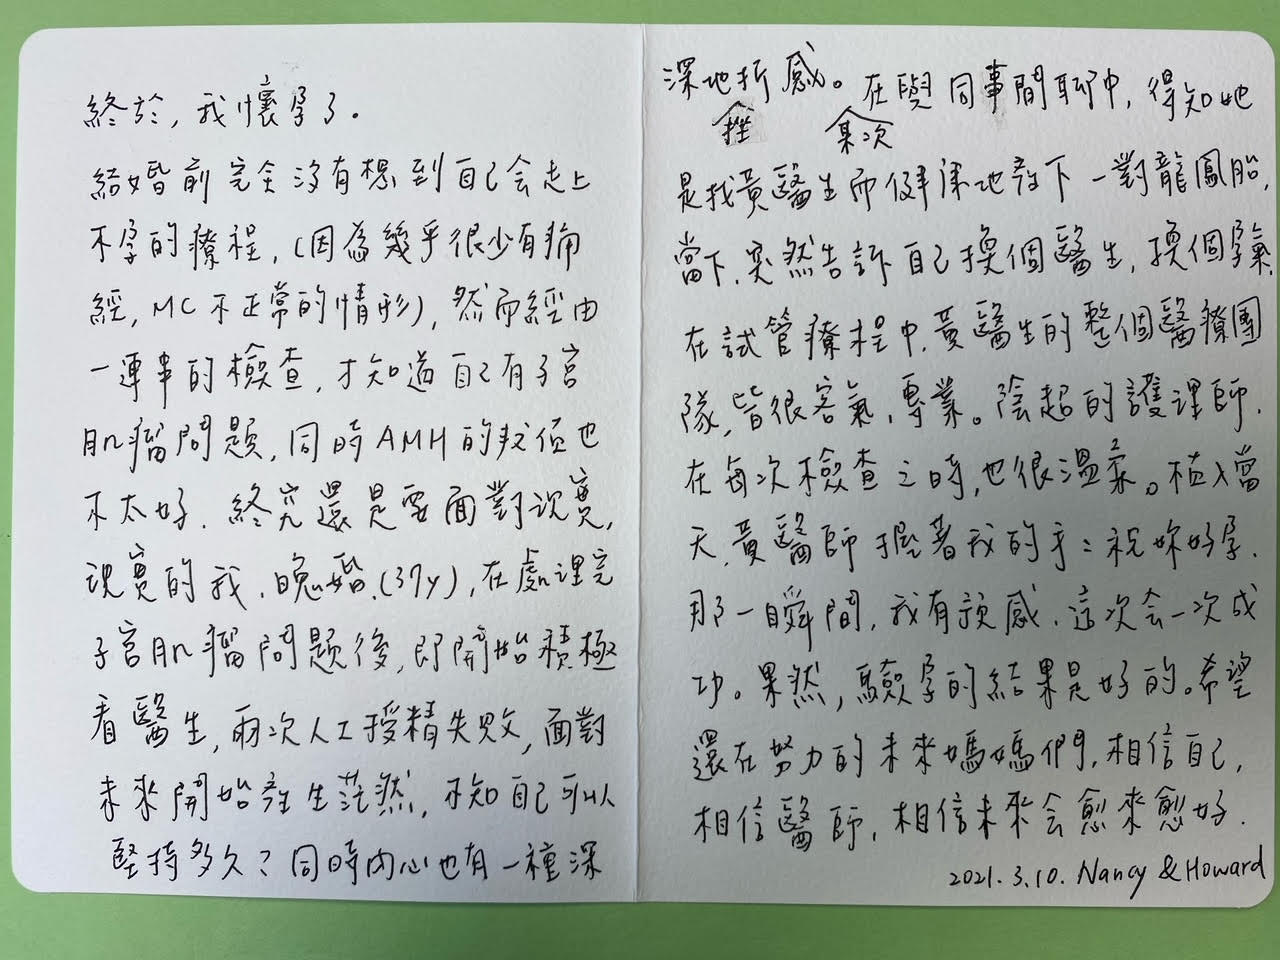 終於，我懷孕了。
結婚前完全沒有想到自己会走上
不孕的療程，(因為幾乎很少有痛
經，MC不正常的情形)，然而經由
一連串的檢查，才知道自己有子宮
肌瘤問題，同時AMH的数值也
不太好．終究還是要面對現實，
現實的我．晚婚．(37y)，在處理完
子宮肌瘤問題後，即開始積極
看醫生，兩次人工授精失敗，面對
未來開始產生茫然，不知自己可以
堅持多久？同時內心也有一種深
深地折感。在與同事間聊中，得知她
挫 某次
是找黃醫生而健康地產下一對龍鳳胎，
當下．突然告訴自己換個醫生，換個孕氣．
在試管療程中．黃醫生的整個醫療團
隊，皆很客氣，專業。陰超的護理師．
在每次檢查之時，也很溫柔。植入當
天，黃醫師握著我的手：祝妳好孕．
那一瞬間，我有預感．這次会一次成
功。果然，驗孕的結果是好的。希望
還在努力的未來媽媽們，相信自己，
相信醫師，相信未來会愈來愈好．
2021.3.10. Nancy & Howard